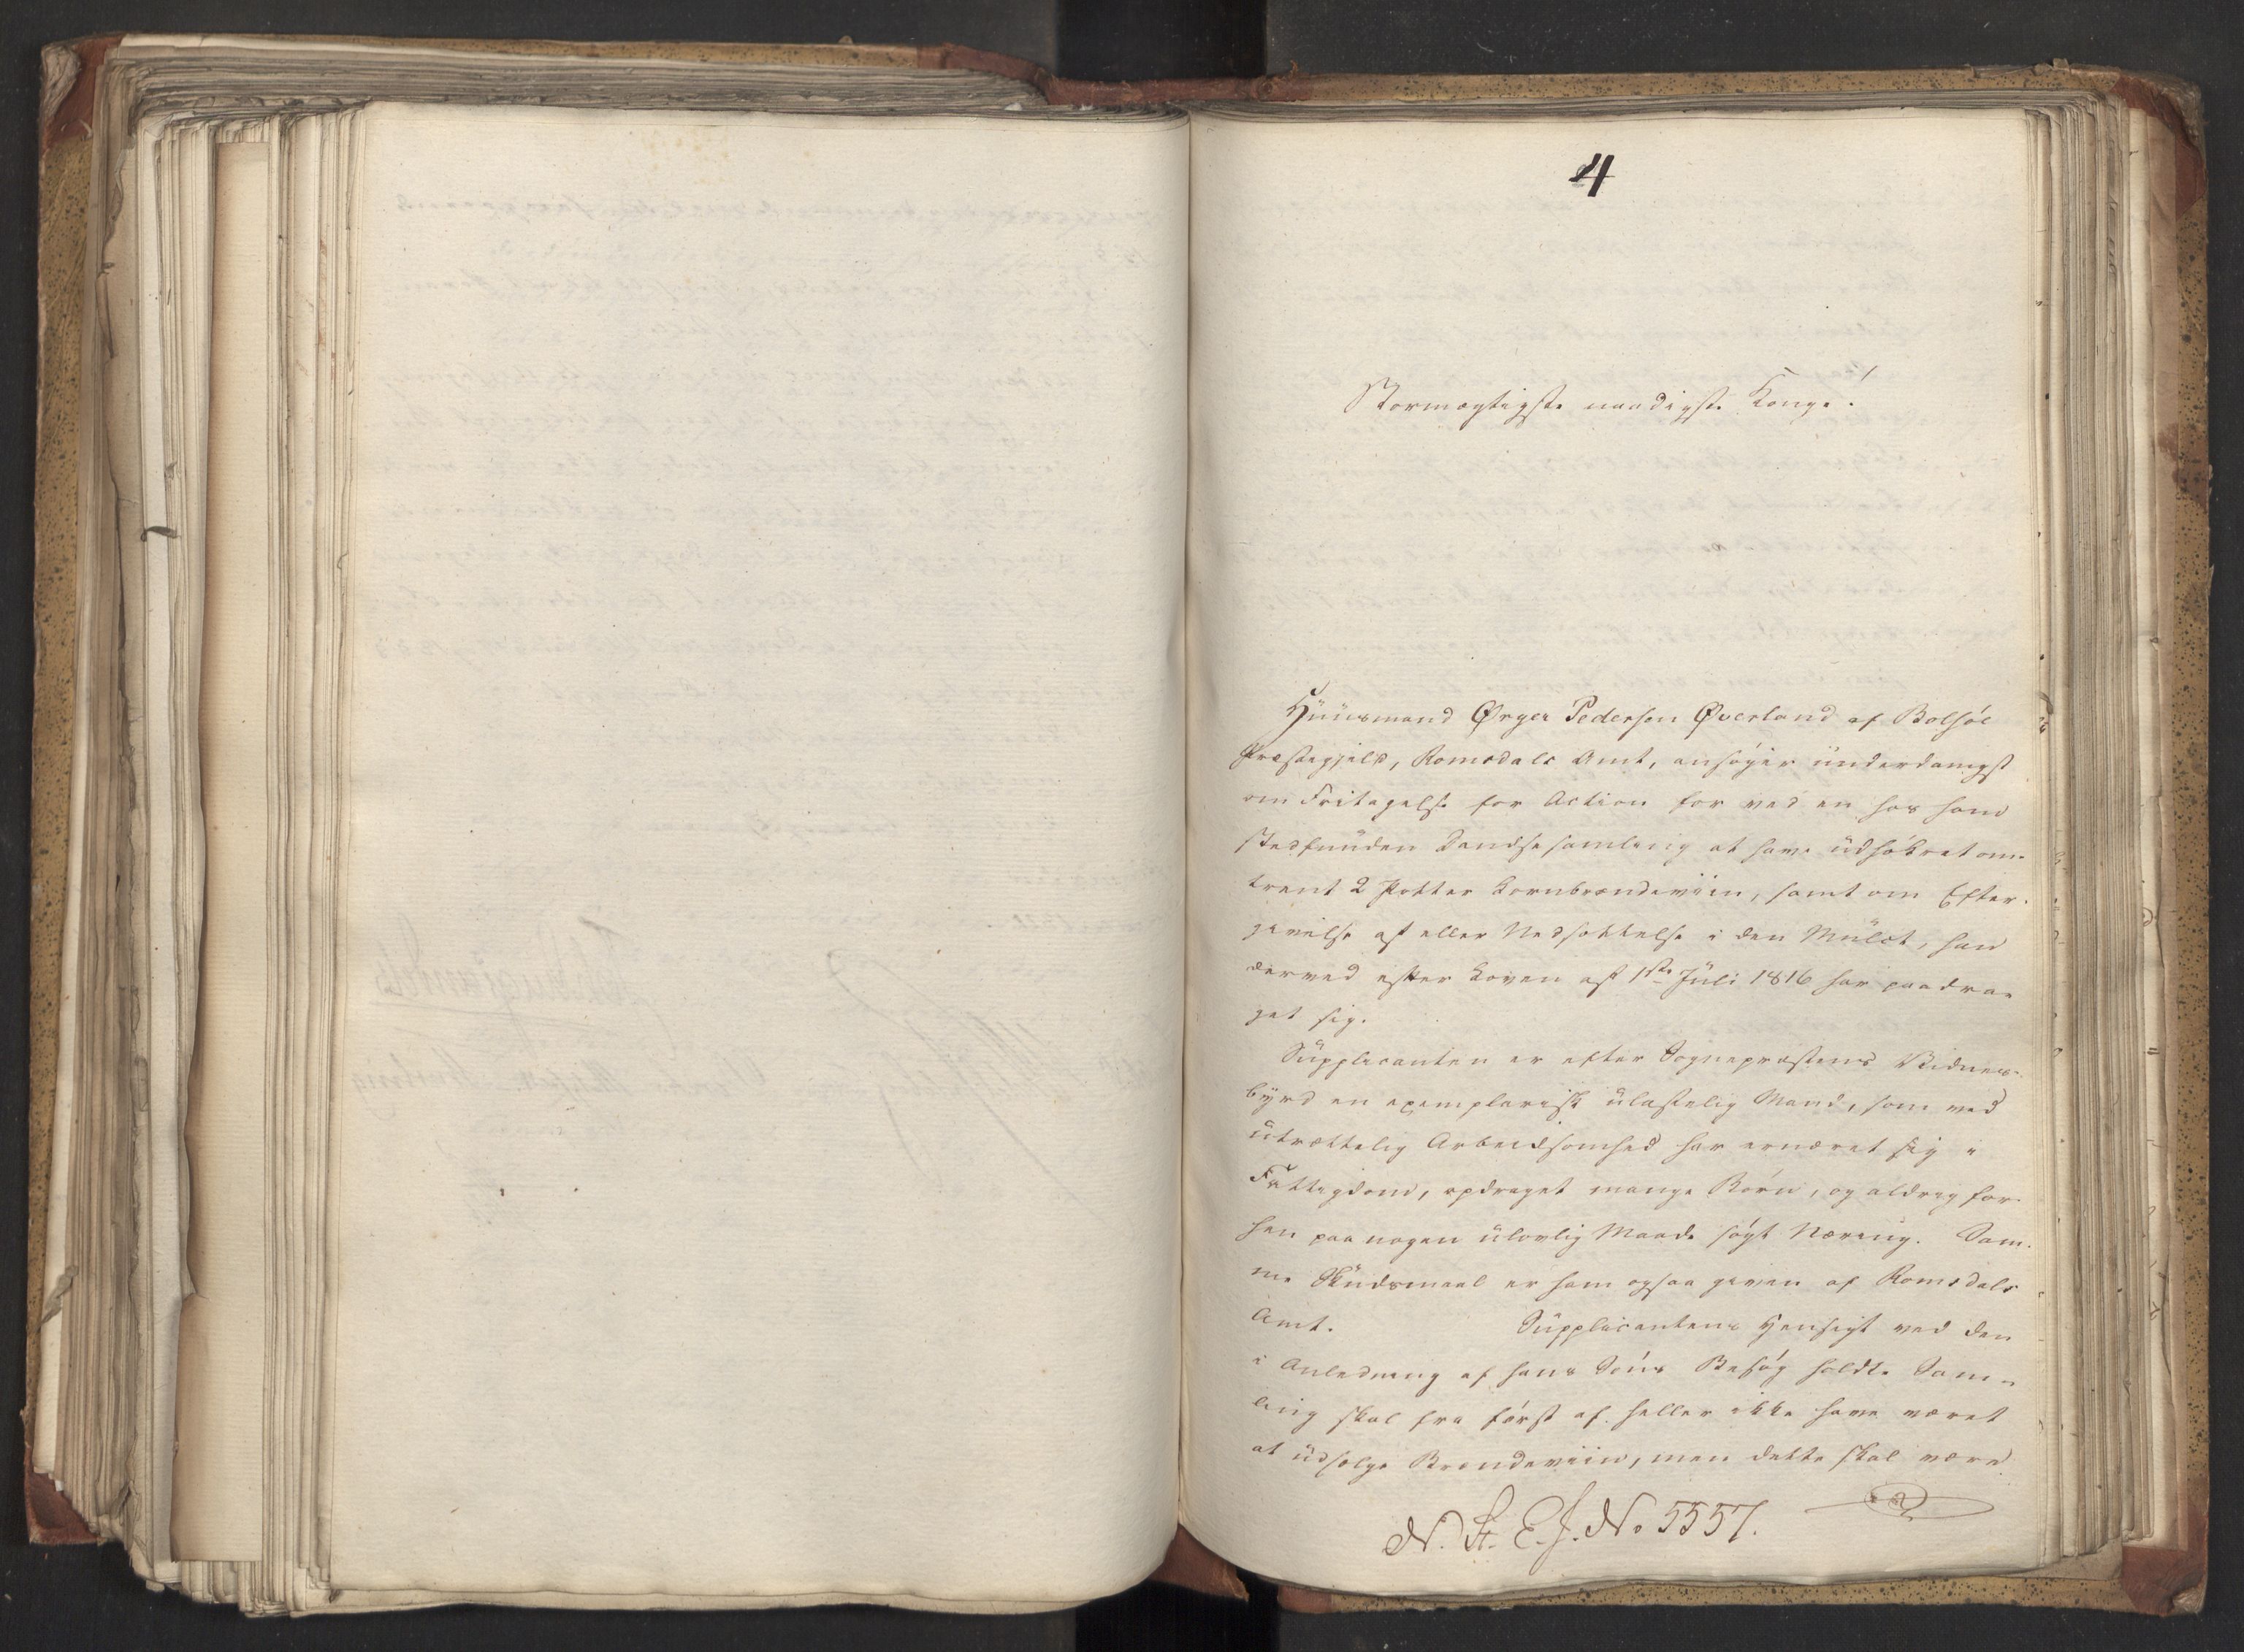 4
Stormægtigste naadigste Konge!
Huusmand Ørger Pedersen Øverland af Bolsøe
Præstegjeld, Romsdals Amt, ansøger underdanigst
om Fritagelse for Action for ved en hos ham
stedfunden Dandsesamling at have udhökret om-
trent 2 Potter Kornbrændeviin, samt om Efter-
givelse af eller Nedsættelse i den Mulct, han
derved efter Loven af 1ste Juli 1816 har paadra-
get sig.
Supplicanten er efter Sognepræstens Vidnes-
byrd en exemplarisk ulastelig Mand, som ved
utrættelig Arbeidsomhed har ernæret sig i
Fattigdom, opdraget mange Børn, og aldrig for-
hen paa nogen ulovlig Maade søgt Næring. Sam-
me Skudsmaal er ham ogsaa given af Romsdals
Amt. Supplicantens Hensigt ved den
i Anledning af hans Søns Besøg holdte Sam-
ling skal fra først af heller ikke have været
at udsælge Brændeviin, men dette skal være
N. St. E. J. No 5557.